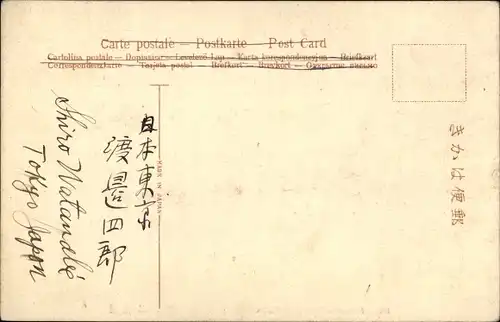 Carte postale — Postkarte — Post Card
Cartolina postale — Dopisnica — Levelező Lap — Karta korespondencyjna — Briefkaart
Correspondenzkarte — Tarjeta postal — Brefkort — Brevkort — Открытое письмо
きかは便郵
MADE IN JAPAN
日本東京
渡邉四郎
Shiro Watanabe
Tokyo Japan